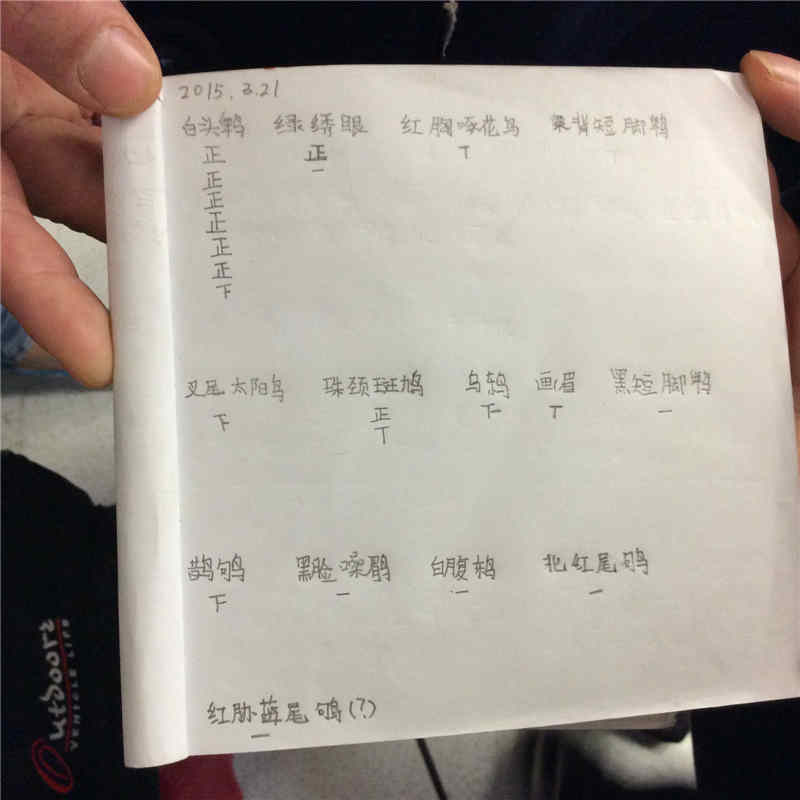 2015.3.21
白头鹎 绿绣眼 红胸啄花鸟 栗背短脚鹎
正 正 T
正 一
正
正
正
正
下
叉尾太阳鸟 珠颈斑鸠 乌鸫 画眉 黑短脚鹎
下 正 下 T 一
T
鹊鸲 黑脸噪鹛 白腹鸫 北红尾鸲
下 一 一 一
红胁蓝尾鸲(?)
一
Outdoorz
VEHICLE LIFE